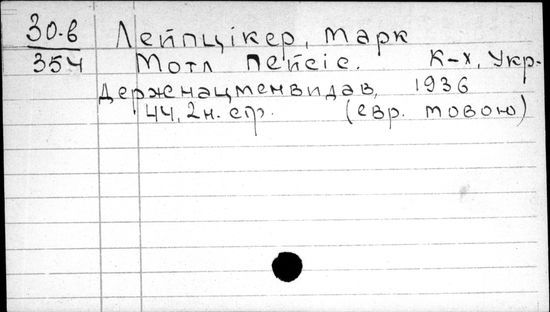 30-6 Лейпцікер, Марк
354 Мотл Пейсіс. К-х, Укр-
держнацменвидав, 1936
44, 2н. стр. (евр. мовою)